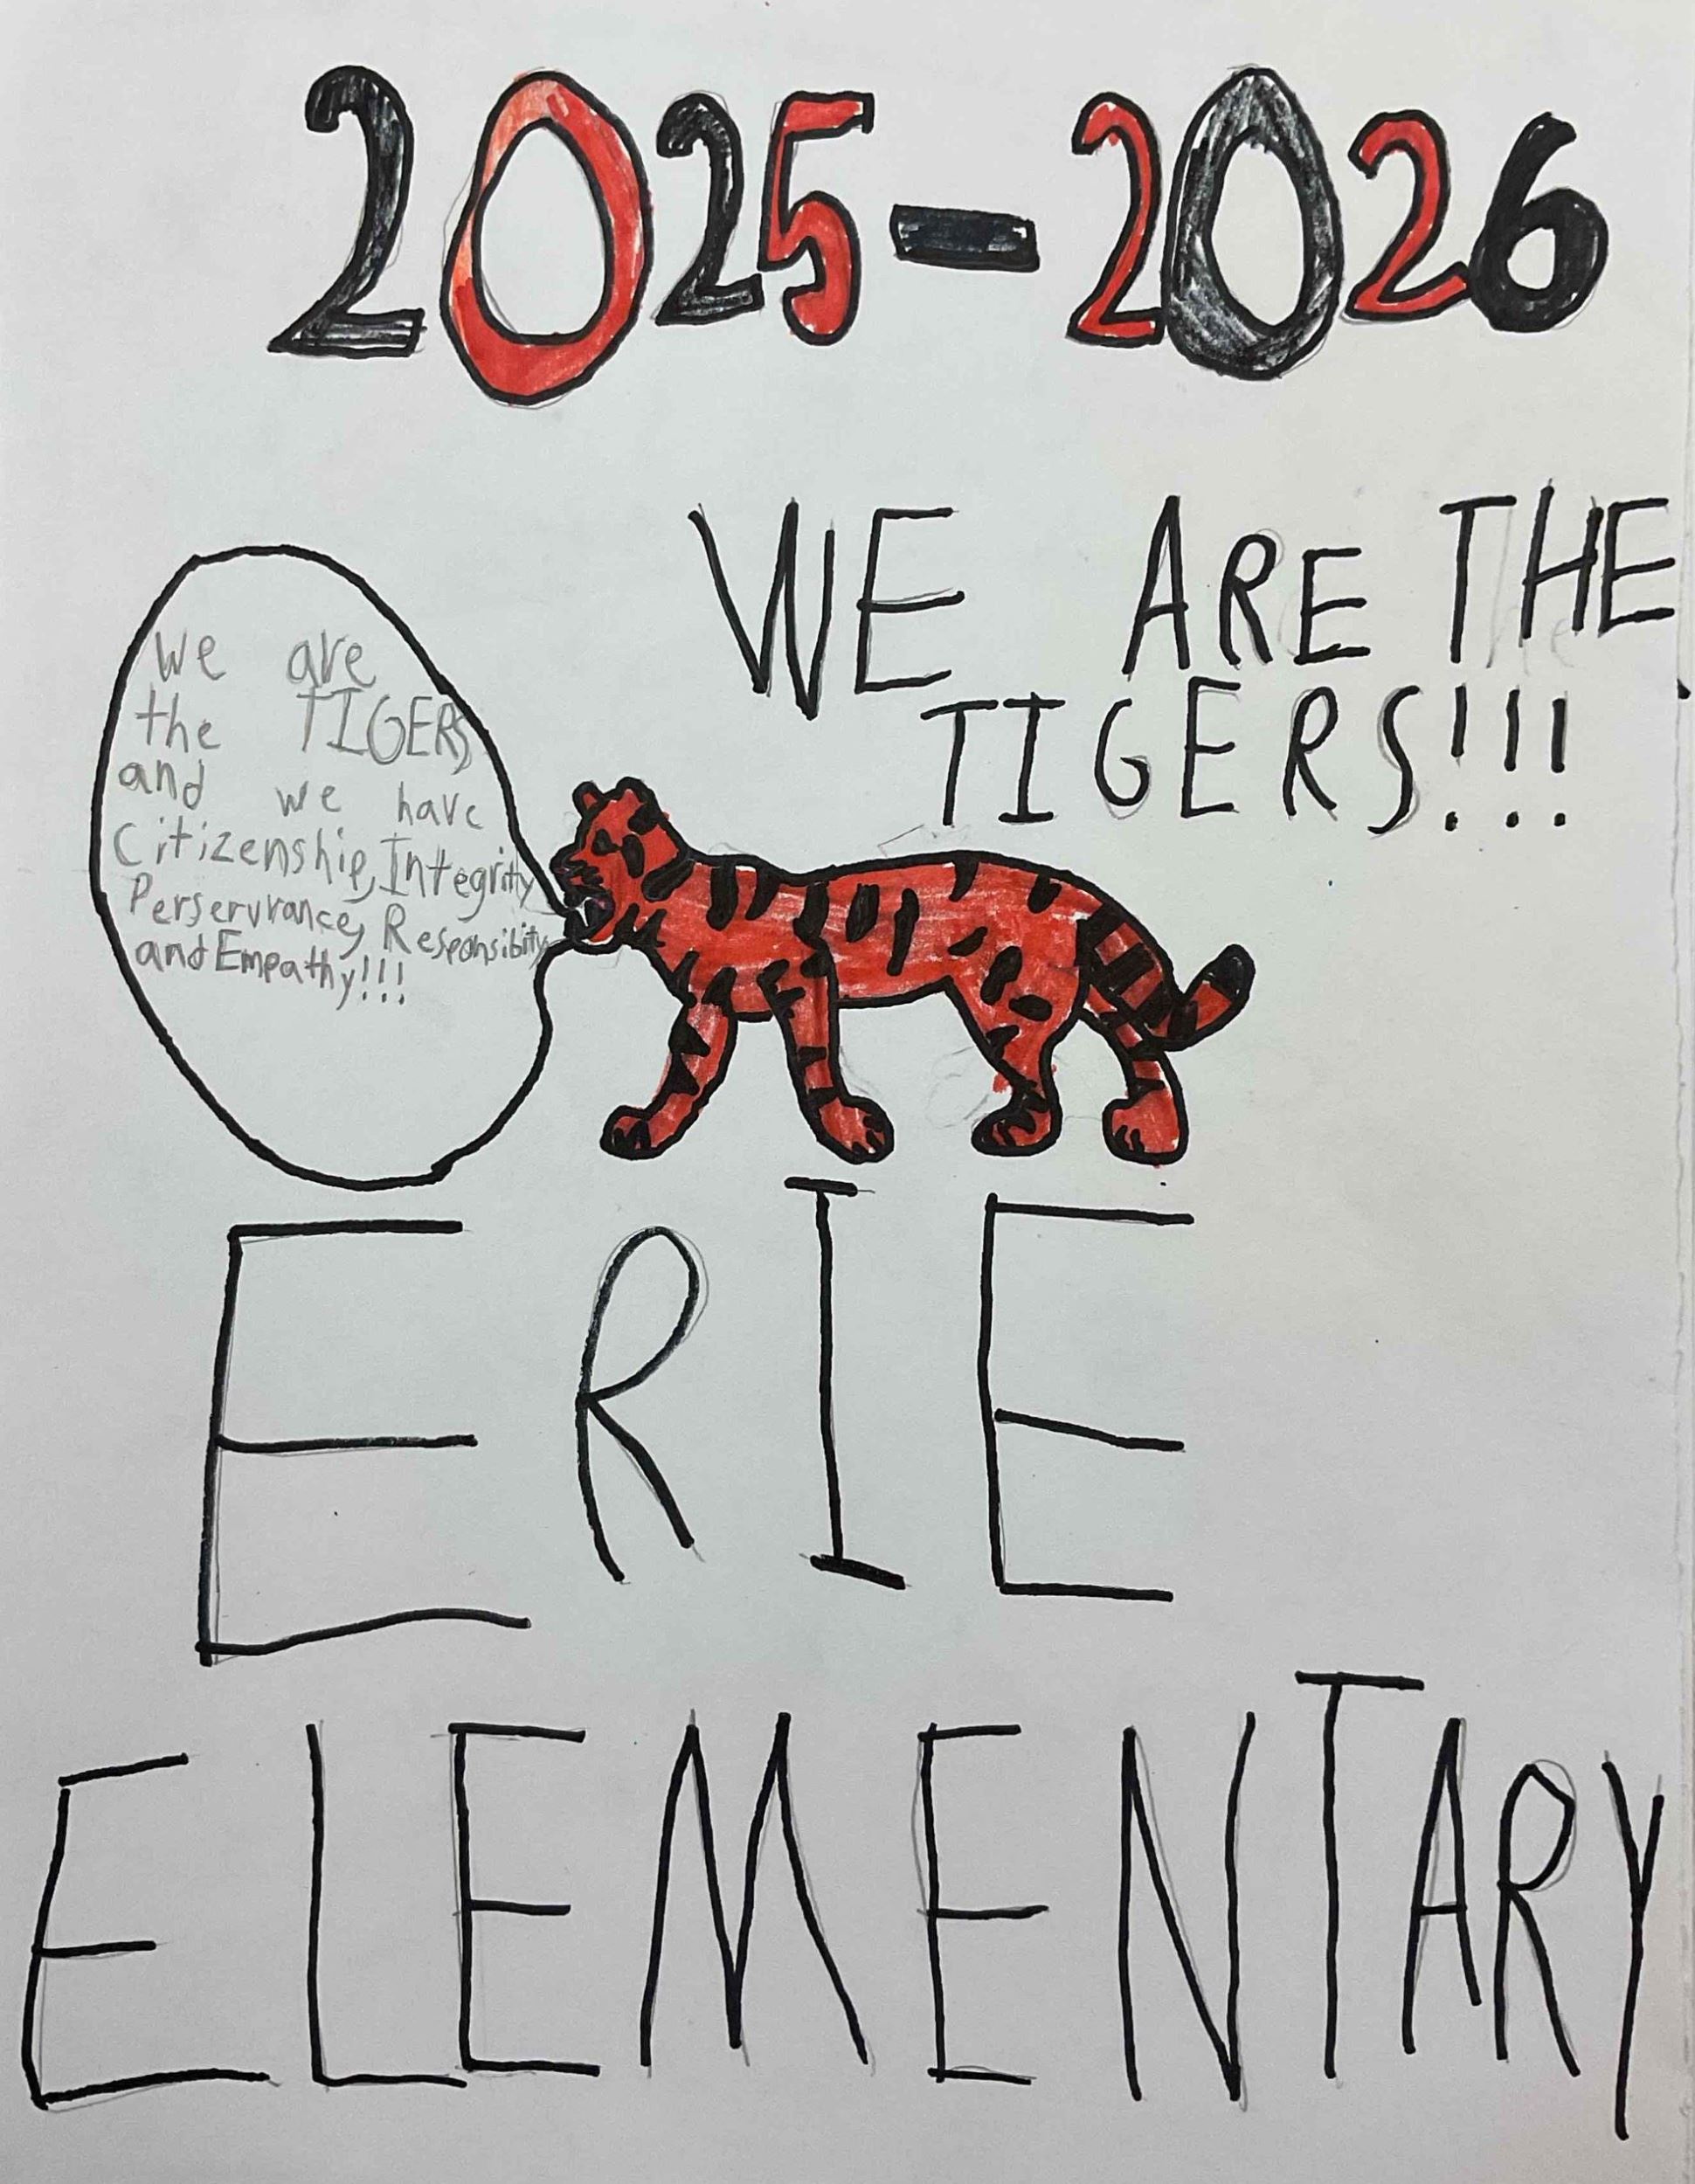 2025-2026
WE ARE THE
TIGERS!!!
We are
the TIGERS
and we have
Citizenship, Integrity
Perservrance, Responsibity
and Empathy!!!
ERIE
ELEMENTARY